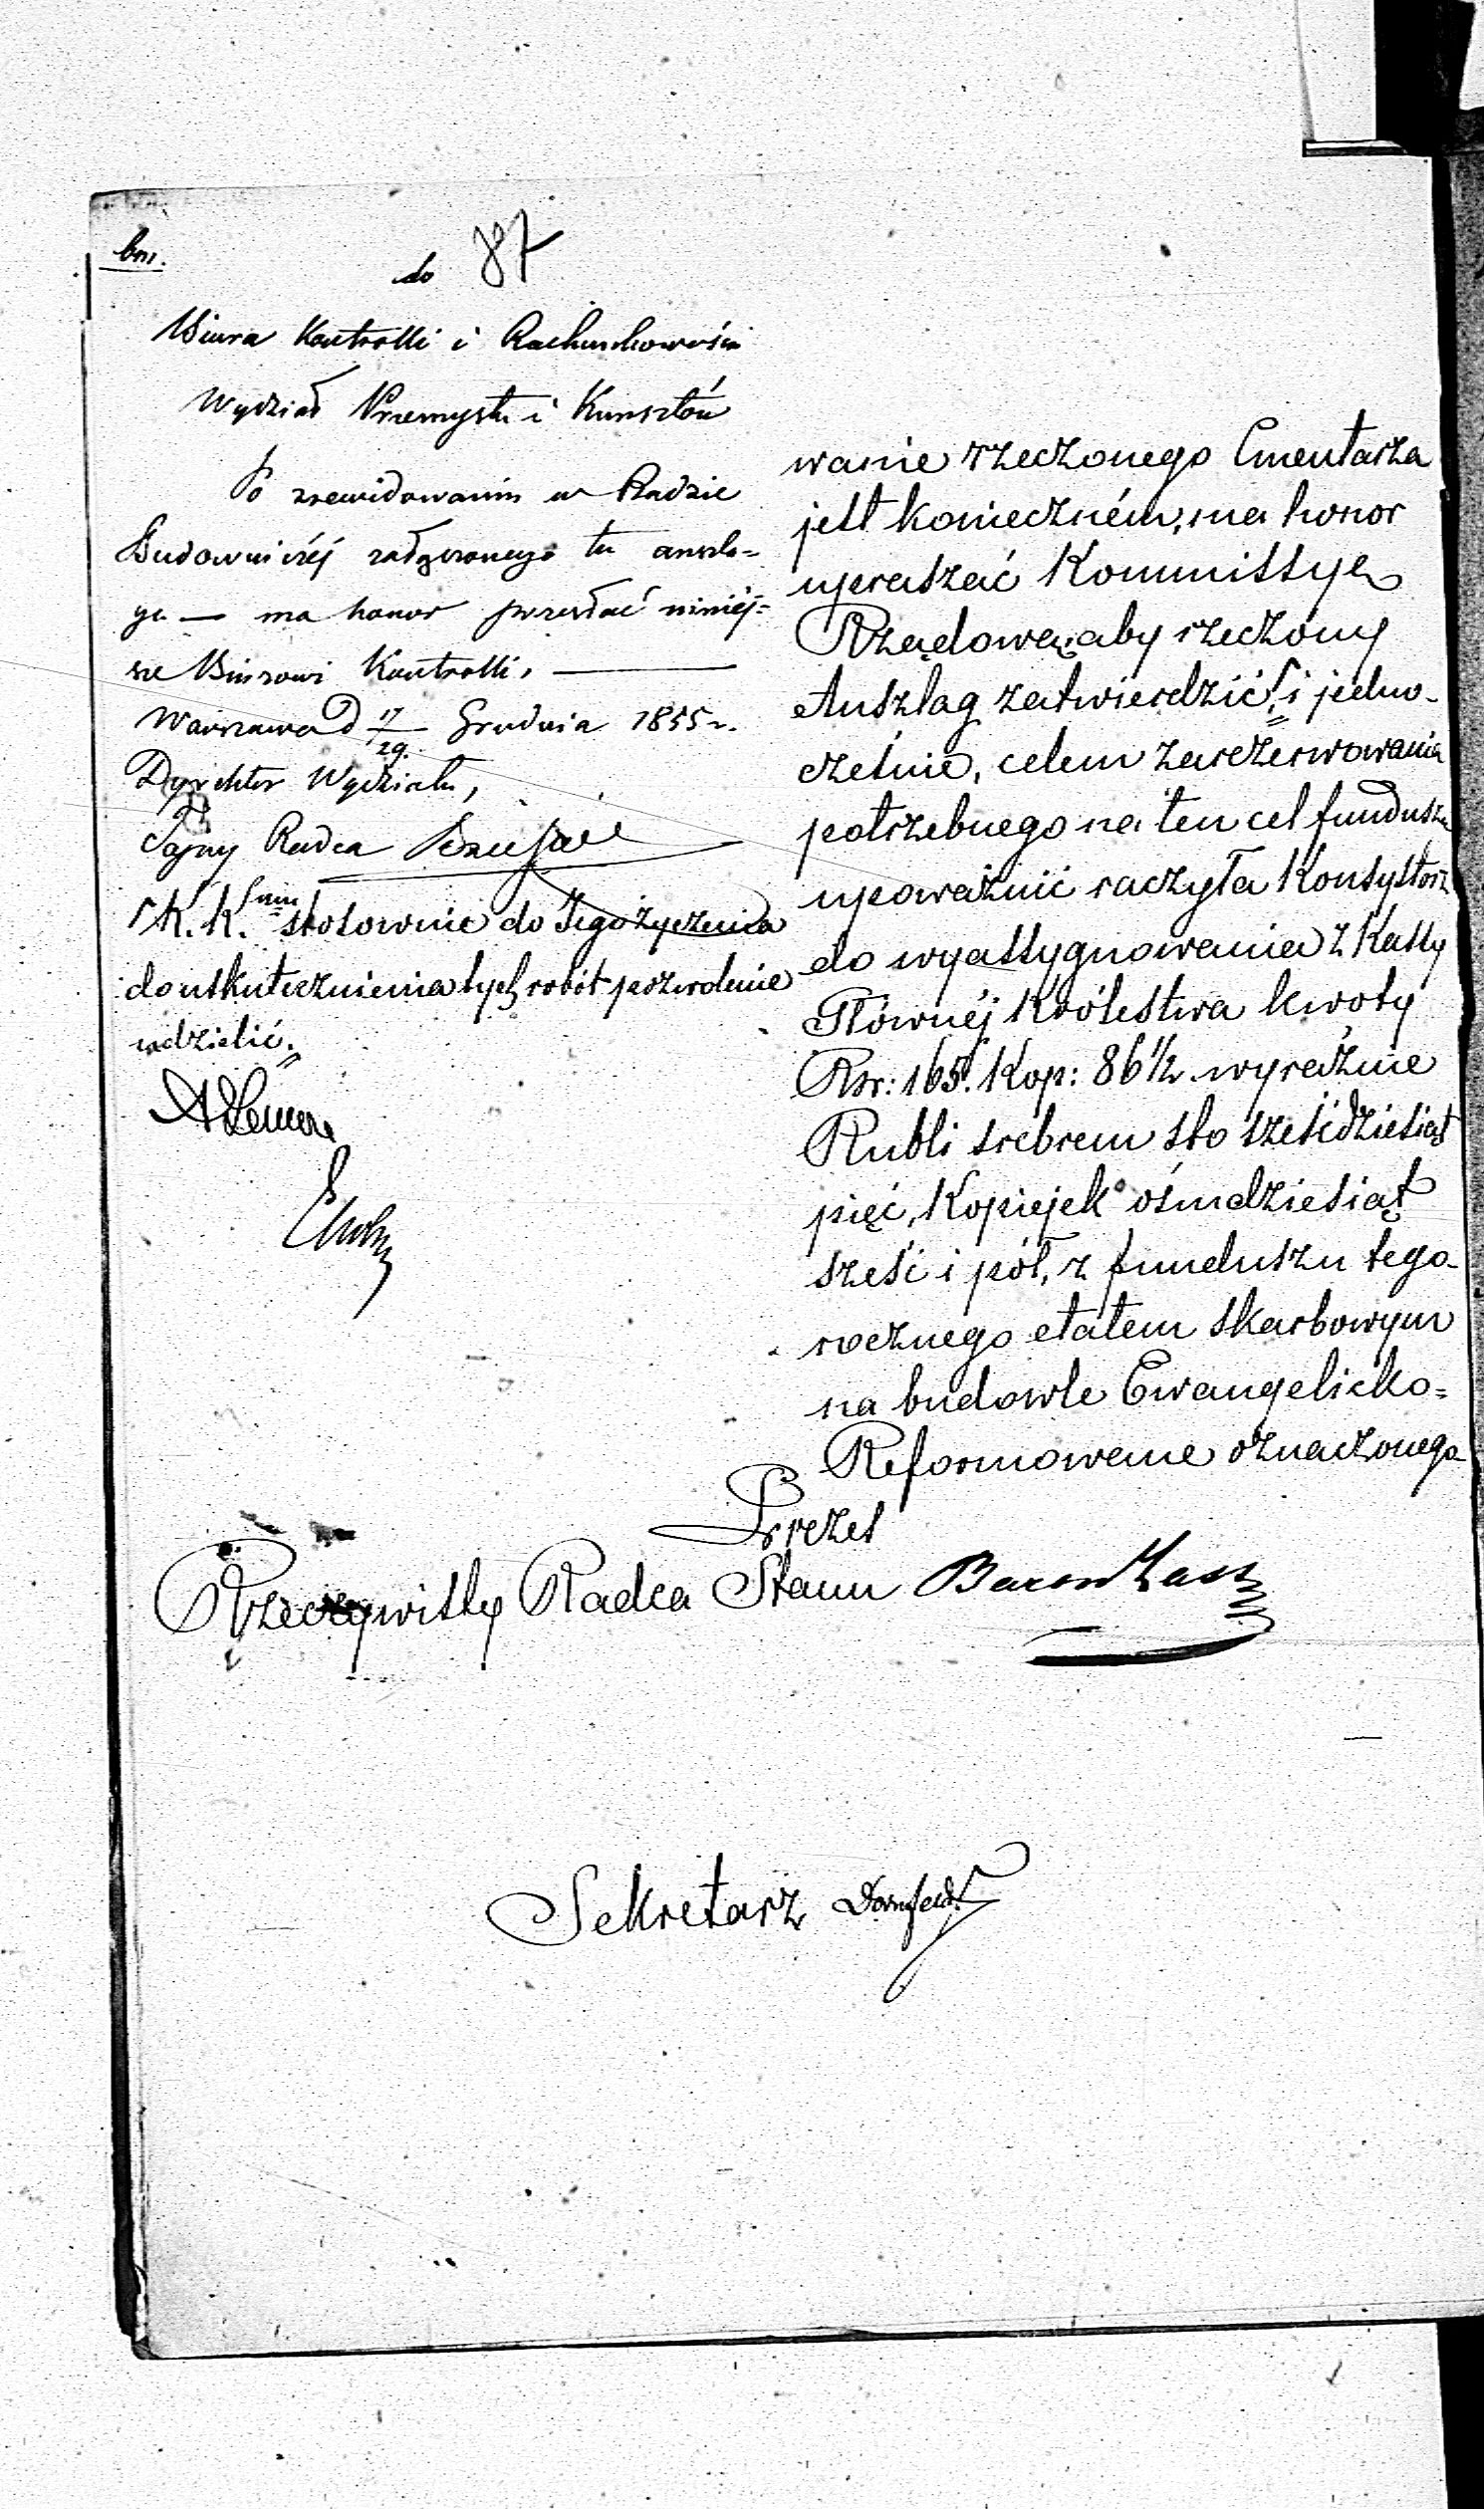 do 87
Biura Kontrolli i Rachunkowości
Wydział Przemysłu i Kunsztów
Po zrewidowaniu w Radzie
Budowniczéj załączonego tu anszla-
gu — ma honor przesłać niniéj-
sze Biurowi Kontrolli. —
Warszawa D 17/29 Grudnia 1855 r.
Dyrektor Wydziału,
Tajny Radca
K. K. stosownie do Jego życzenia
do uskutecznienia tych robót pozwolenie
udzielić.
wanie rzeczonego Cmentarza
jest konieczném, ma honor
upraszać Kommissyę
Rządową, aby rzeczony
Anszlag zatwierdzić, i jedno-
cześnie, celem zarezerwowania
potrzebnego na ten cel funduszu
upoważnić raczyła Konsystorz
do wyassygnowania z Kassy
Głównéj Królestwa kwoty
Rsr: 165. Kop: 86 1/2 wyraźnie
Rubli srebrem sto sześćdziesiąt
pięć, Kopiejek ośmdziesiąt
sześć i pół, z funduszu tego-
rocznego etatem skarbowym
na budowle Ewangelicko-
Reformowane oznaczonego
Prezes
Rzeczywisty Radca Stanu Baron
Sekretarz